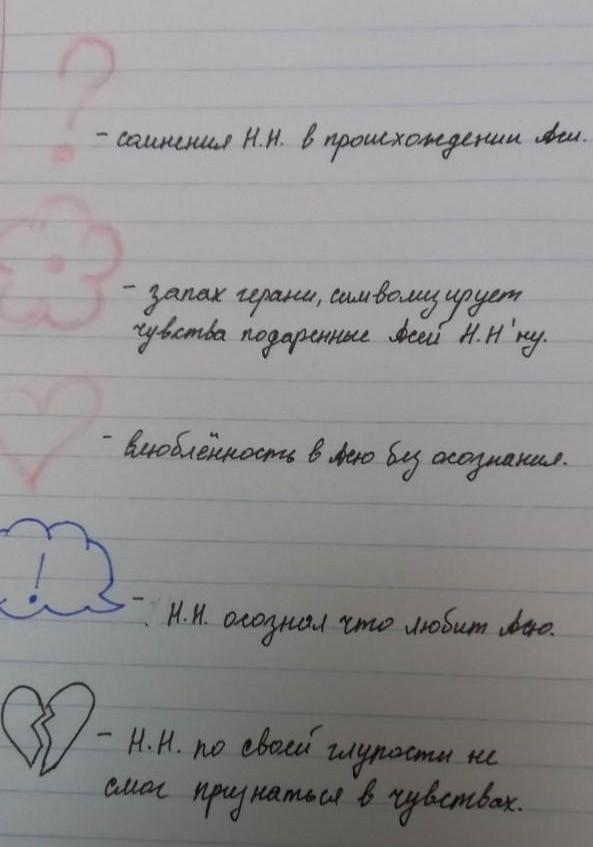 ?
- сомнения Н.Н. в происхождении Аси.
- запах герани, символизирует
чувства подаренные Асей Н.Н'ну.
- влюблённость в Асю без осознания.
!
- Н.Н. осознал что любит Асю.
- Н.Н. по своей глупости не
смог признаться в чувствах.